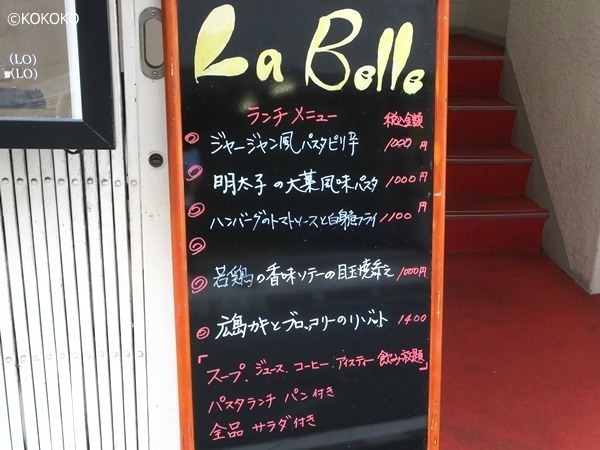 ©KOKOKO
(LO)
(LO)
La Belle
ランチメニュー 税込金額
ジャージャン風パスタピリ辛 1000円
明太子の大葉風味パスタ 1000円
ハンバーグのトマトソースと白身魚フライ 1100円
若鶏の香味ソテーの目玉焼添え 1000円
広島カキとブロッコリーのリゾット 1400
「スープ.ジュース.コーヒー.アイスティー飲み放題」
パスタランチ パン付き
全品 サラダ付き